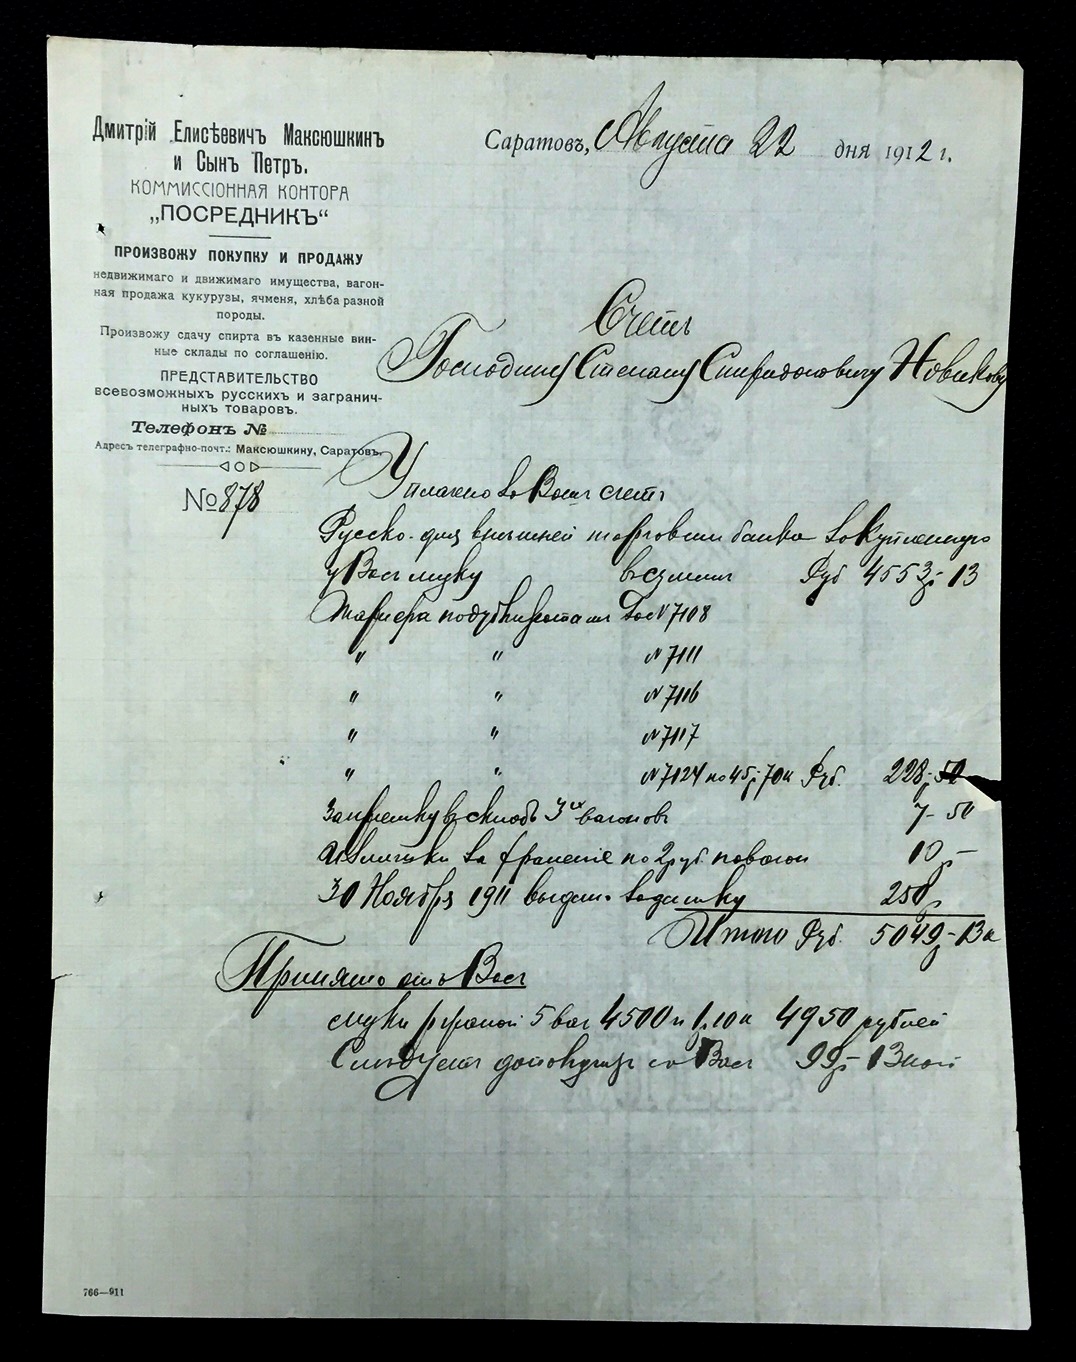 Дмитрій Елисѣевичъ Максюшкинъ
и Сынъ Петръ.
КОММИССІОННАЯ КОНТОРА
„ПОСРЕДНИКЪ“
ПРОИЗВОЖУ ПОКУПКУ И ПРОДАЖУ
недвижимаго и движимаго имущества, вагон-
ная продажа кукурузы, ячменя, хлѣба разной
породы.
Произвожу сдачу спирта въ казенные вин-
ные склады по соглашенію.
ПРЕДСТАВИТЕЛЬСТВО
всевозможныхъ русскихъ и загранич-
ныхъ товаровъ.
Телефонъ №
Адресъ телеграфно-почт.: Максюшкину, Саратовъ.
№ 878
Саратовъ, Августа 22 дня 1912 г.
Счетъ
Господину Степану Спиридоновичу Новикову
Уплачено за Вашъ счетъ
Русско-для внѣшней торговли банка за купленную
у Васъ муку Руб 4553,- 13
по дубликатамъ за № 7108
" " № 7111
" " № 7116
" " № 7117
" " № 7124 по 45,- 70 к Руб. 228,- 50
3хъ вагоновъ 7 - 50
за храненіе по 2 руб. 10,-
30 Ноября 1911 выдано задатку 250,
Итого Руб. 5049,- 13 к
Принято отъ Васъ
муки ржаной 5 ваг 4500 п 1,10 к 4950 рублей
Слѣдуетъ съ Васъ 99,- 13 коп
766—911